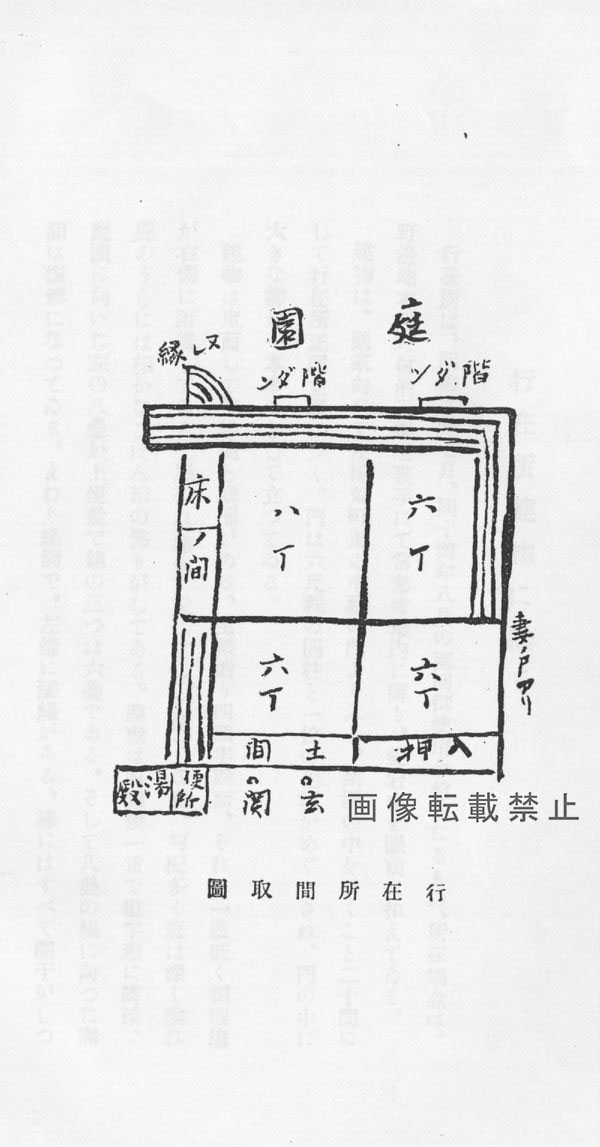 庭園
階ダン
階ダン
ヌレ縁
六丁
八丁
床ノ間
妻ノ戸アリ
六丁
六丁
押入
土間
玄関
便所
湯殿
画像転載禁止
行在所間取圖